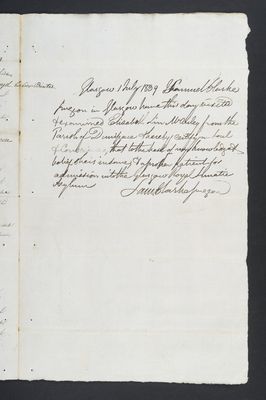 Glasgow July 1839 I Samuel Clarke
Surgeon in Glasgow have this day visited
& examined Elizabeth from the
Parish of Dunipace & hereby certify on Soul
& Conscience, that to the best of my knowledge &
belief she is insane, & a proper patient for
admission into the Glasgow Royal Lunatic
Asylum
Sam Clarke Surgeon